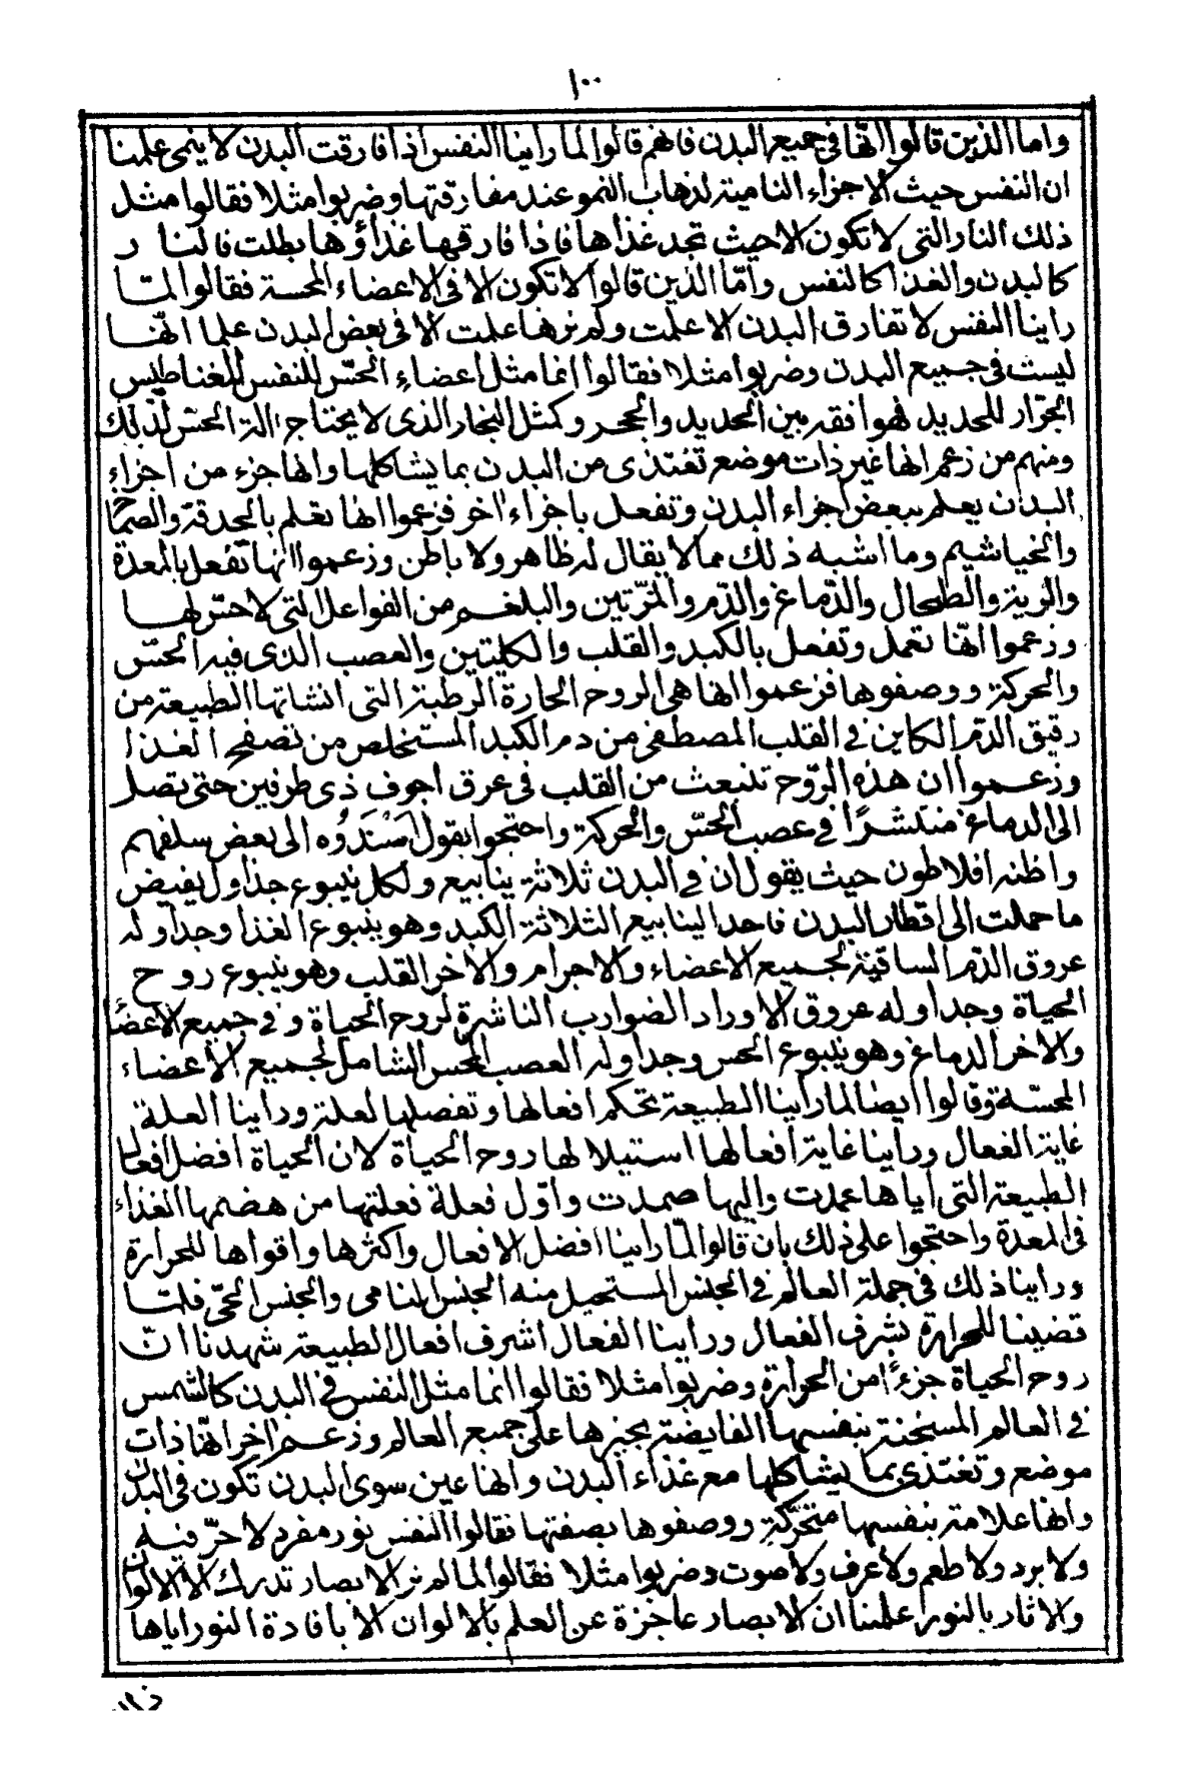 ١٠٠
واما الذين قالوا انها فى جميع البدن فانهم قالوا لما راينا النفس اذا فارقت البدن لا ينمى علمنا
ان النفس حيث الاجزاء النامية لذهاب النمو عند مفارقتها وضربوا مثلا فقالوا مثل
ذلك النار التى لا تكون الا حيث تجد غذاها فاذا فارقها غذاؤها بطلت فالنار
كالبدن والغذا كالنفس وامّا الذين قالوا لا تكون الا فى الاعضاء المحسة فقالوا لمّا
راينا النفس لا تفارق البدن الا علمت ولم نرها علمت الا فى بعض البدن علمنا انّها
ليست فى جميع البدن وضربوا مثلا فقالوا انما مثل اعضاءِ الحسّ للنفس للمغناطيس
الجرّار للحديد لموافقة بين الحديد والحجر وكمثل النجار الذى لا يحتاج الة الحسّ لذلك
ومنهم من زعم انها غير ذات موضع تغتذى من البدن بما يشاكلها وانها جزء من اجزاءِ
البدن يعلم ببعض اجزاء البدن وتفعل باجزاء اخر فزعموا انها تعلم بالحدقة والصماخ
والخياشيم وما اشبه ذلك مما لا يقال له ظاهر ولا باطن وزعموا انها تفعل بالمعدة
والرية والطحال والدّماغ والدّم والمرّتين والبلغم من الفواعل التى لا حسّ لها
وزعموا انّها تعمل وتفعل بالكبد والقلب والكليتين والعصب الذى فيه الحسّ
والحركة ووصفوها فزعموا انها هى الروح الحارة الرطبة التى انشاتها الطبيعة من
رقيق الدّم الكاين فى القلب المصطفى من دم الكبد المستخلص من تصفح الغذا
وزعموا ان هذه الرّوح تنبعث من القلب فى عرق اجوف ذى طرفين حتى تصل
الى الدماغ منتشرًا فى عصب الحسّ والحركة واحتجوا بقول اسْنَدُوه الى بعض سلفهم
واظنه افلاطون حيث يقول ان فى البدن ثلاثة ينابيع ولكل ينبوع جداول يفيض
ما حملت الى اقطار البدن فاحد الينابيع الثلاثة الكبد وهو ينبوع الغذا وجداوله
عروق الدّم الساقية لجميع الاعضاء والاجرام والاخر القلب وهو ينبوع روح
الحياة وجداوله عروق الاوراد الضوارب الناشرة لروح الحياة و فى جميع الاعضاء
والاخر الدماغ وهو ينبوع الحس وجداوله العصب المحّس الشامل لجميع الاعضاء
المحسّة وقالوا ايضا لما راينا الطبيعة تحكم افعالها وتفصلها لعلة وراينا العلة
غاية الفعال وراينا غاية افعالها استيلا لها روح الحياة لان الحياة افضل افعال
الطبيعة التى اياها عمدت واليها صمدت واوّل فعلة فعلتها من هضمها الغذاء
فى المعدة واحتجوا على ذلك بان قالوا لمّا راينا افضل الافعال واكثرها واقواها للحرارة
وراينا ذلك فى جملة العالم فى الجنس المستحيل منه الجنس النامى والجنس الحىّ فلمّا
قضينا للحرارة بشرف الفعال وراينا الفعال اشرف افعال الطبيعة شهدنا انّ
روح الحياة جزءًا من الحرارة وضربوا مثلا فقالوا انما مثل النفس فى البدن كالشمس
فى العالم المسخنة بنفسها الفايضة بخيرها على جميع العالم وزعم اخر انّها ذات
موضع وتغتذى بما يشاكلها مع غذاء البدن وانها عين سوى البدن تكون فى البدن
وانها علامة بنفسها متحرّكةٍ ووصفوها بصفتها فقالوا النفس نور مفرد لا حرّ فيه
ولا برد ولا طعم ولا عرف ولا صوت وضربوا مثلا فقالوا لما لم نر الابصار تدرك الا الالوان
والاثار بالنور علمنا ان الابصار عاجزة عن العلم بالالوان الا بافادة النور اياها